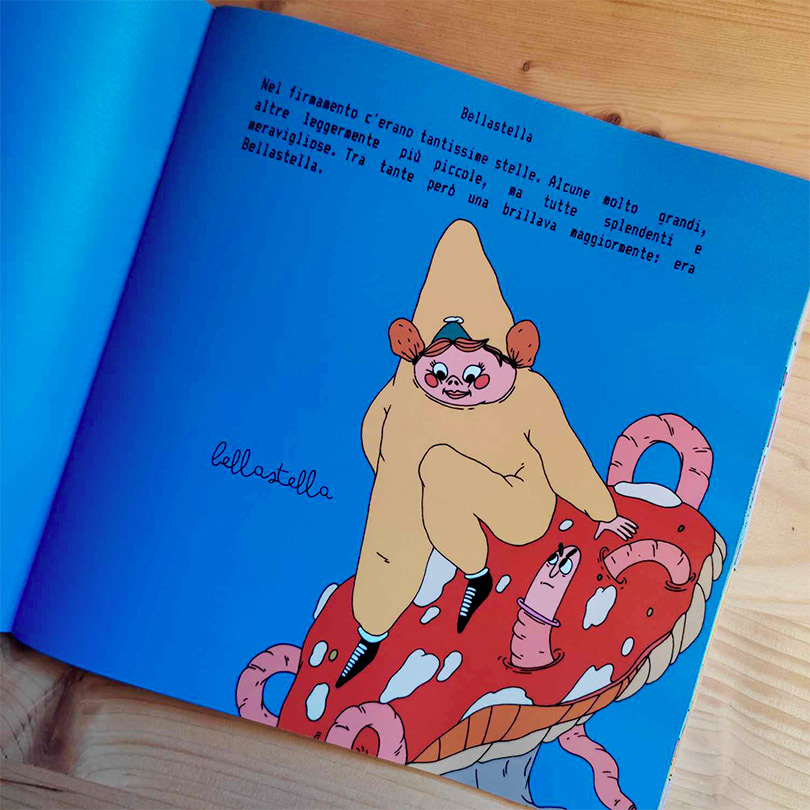 Bellastella
Nel firmamento c'erano tantissime stelle. Alcune molto grandi,
altre leggermente più piccole, ma tutte splendenti e
meravigliose. Tra tante però una brillava maggiormente: era
Bellastella.
bellastella